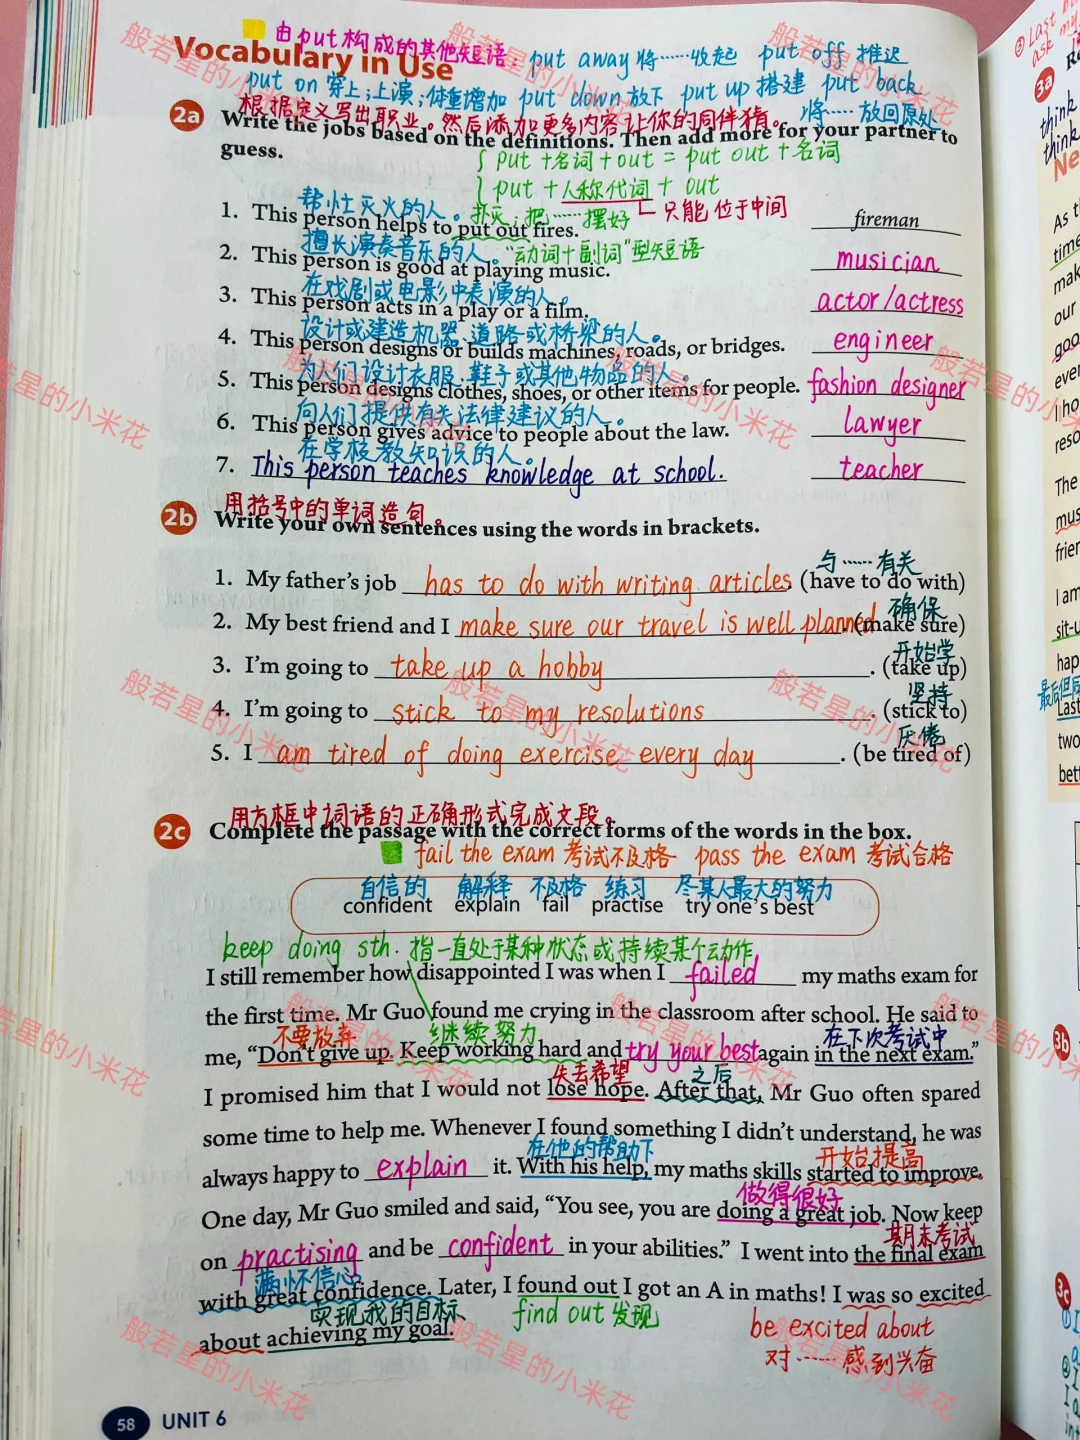 由put构成的其他短语：put away将……收起 put off 推迟
Vocabulary in Use
put on 穿上；上演；体重增加 put down 放下 put up 搭建 put back
将……放回原处
根据定义写出职业。然后添加更多内容让你的同伴猜。
2a Write the jobs based on the definitions. Then add more for your partner to
guess.
put + 名词 + out = put out + 名词
put + 人称代词 + out
只能位于中间
帮忙灭火的人。 扑灭；把……摆好
1. This person helps to put out fires. fireman
擅长演奏音乐的人。 "动词+副词"型短语
2. This person is good at playing music. musician
在戏剧或电影中表演的人。
3. This person acts in a play or a film. actor/actress
设计或建造机器、道路或桥梁的人。
4. This person designs or builds machines, roads, or bridges. engineer
为人们设计衣服、鞋子或其他物品的人。
5. This person designs clothes, shoes, or other items for people. fashion designer
向人们提供有关法律建议的人。
6. This person gives advice to people about the law. lawyer
在学校教知识的人。
7. This person teaches knowledge at school. teacher
用括号中的单词造句。
2b Write your own sentences using the words in brackets.
与……有关
1. My father's job has to do with writing articles. (have to do with)
确保
2. My best friend and I make sure our travel is well planned. (make sure)
开始学
3. I'm going to take up a hobby. (take up)
坚持
4. I'm going to stick to my resolutions. (stick to)
厌倦
5. I am tired of doing exercise every day. (be tired of)
用方框中词语的正确形式完成文段。
2c Complete the passage with the correct forms of the words in the box.
fail the exam 考试不及格 pass the exam 考试合格
自信的 解释 不及格 练习 尽某人最大的努力
confident explain fail practise try one's best
keep doing sth. 指一直处于某种状态或持续某个动作
I still remember how disappointed I was when I failed my maths exam for
the first time. Mr Guo found me crying in the classroom after school. He said to
不要放弃 继续努力 在下次考试中
me, "Don't give up. Keep working hard and try your best again in the next exam."
失去希望 之后
I promised him that I would not lose hope. After that, Mr Guo often spared
some time to help me. Whenever I found something I didn't understand, he was
在他的帮助下 开始提高
always happy to explain it. With his help, my maths skills started to improve.
做得很好
One day, Mr Guo smiled and said, "You see, you are doing a great job. Now keep
期末考试
on practising and be confident in your abilities." I went into the final exam
满怀信心
with great confidence. Later, I found out I got an A in maths! I was so excited
实现我的目标 find out 发现 be excited about
about achieving my goal.
对……感到兴奋
58 UNIT 6
般若星的小米花
③ Last but
ask my
3a
think
think
Ne
As t
time
mak
our
goo
ever
I ho
reso
The
mus
frien
I am
sit-u
hap
最后但同
Last
two
bett
3b
3c